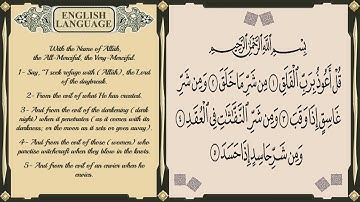 ENGLISH
LANGUAGE
With the Name of Allâh,
the All-Merciful, the Very-Merciful.
1- Say, "I seek refuge with (Allâh), the Lord
of the daybreak.
2- From the evil of what He has created.
3- And from the evil of the darkening (dark
night) when it penetrates (as it comes with its
darkness; or the moon as it sets or goes away).
4- And from the evil of those (women) who
practise witchcraft when they blow in the knots.
5- And from the evil of an envier when he
envies.
بِسْمِ اللَّهِ الرَّحْمَٰنِ الرَّحِيمِ
قُلْ أَعُوذُ بِرَبِّ الْفَلَقِ ١ مِن شَرِّ مَا خَلَقَ ٢ وَمِن شَرِّ
غَاسِقٍ إِذَا وَقَبَ ٣ وَمِن شَرِّ النَّفَّٰثَٰتِ فِي الْعُقَدِ ٤
وَمِن شَرِّ حَاسِدٍ إِذَا حَسَدَ ٥